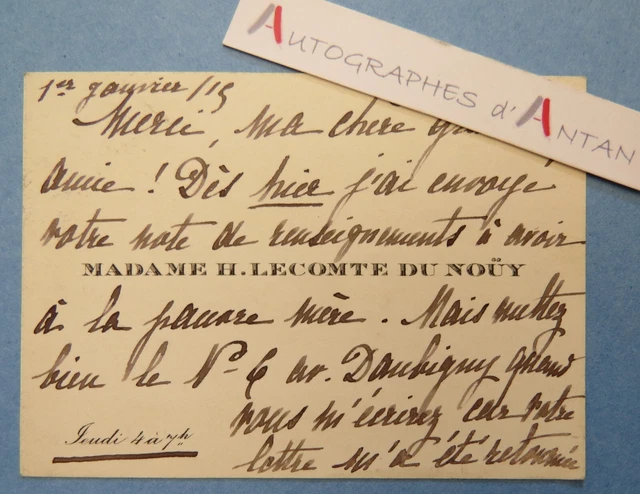 AUTOGRAPHES d'ANTAN
1er janvier /15
Merci, ma chère
amie ! Dès hier j'ai envoyé
votre note de renseignements à avoir
MADAME H. LECOMTE DU NOÜY
à la pauvre mère. Mais mettez
bien le No 6 av. Daubigny quand
vous m'écrirez car votre
Jeudi 4 à 7h
lettre m'a été retournée